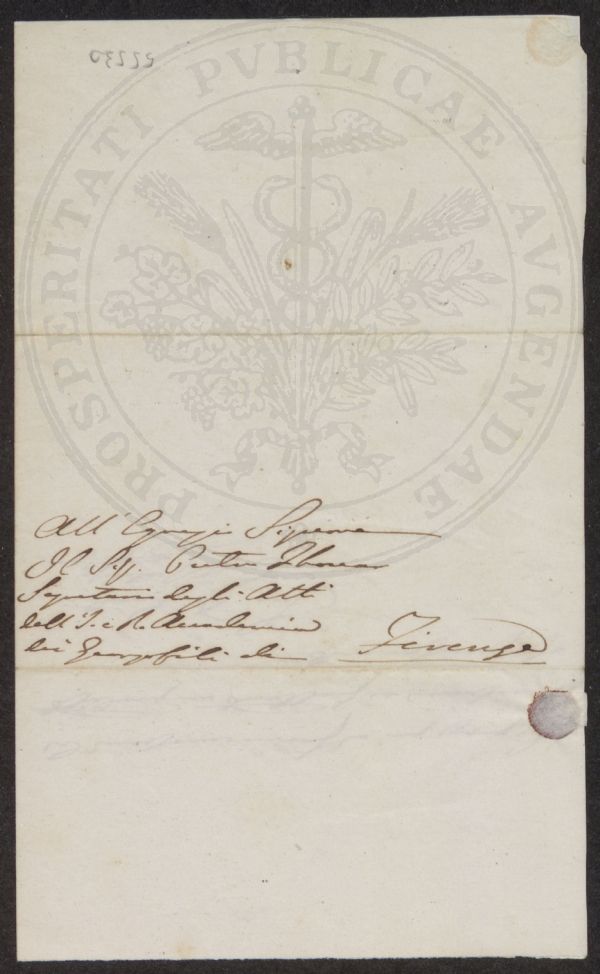 PROSPERITATI PVBLICAE AVGENDAE
All' Egregio Signore
Il Sig. Pietro Thouar
Segretario degli Atti
dell' I. e R. Accademia
dei Georgofili di Firenze